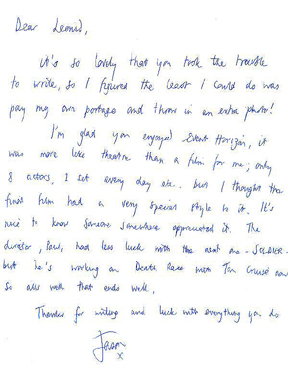 Dear Leonid,
it's so lovely that you took the trouble
to write, so I figured the least I could do was
pay my own postage and throw in an extra photo!
I'm glad you enjoyed Event Horizon, it
was more like theatre than a film for me; only
8 actors, 1 set every day etc.. but I thought the
final film had a very special style to it. It's
nice to know someone somewhere appreciated it. The
director, Paul, had less luck with the next one - SOLDIER -
but he's working on Death Race with Tom Cruise now
so alls well that ends well.
Thanks for writing and luck with everything you do
Jason
x